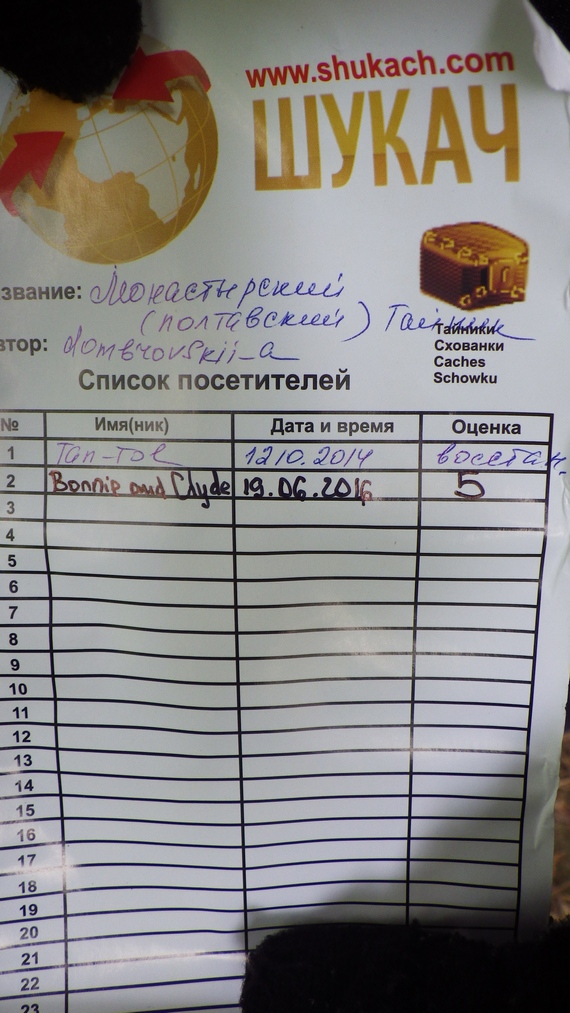 www.shukach.com
ШУКАЧ
звание: Монастырский
(полтавский) Тайник
втор: dombrovskii_a
Тайники
Схованки
Caches
Schowku
Список посетителей
№ Имя(ник) Дата и время Оценка
1 Tan-Tol 12 10.2014 восстан.
2 Bonnie and Clyde 19.06.2016 5
3
4
5
6
7
8
9
10
11
12
13
14
15
16
17
18
19
20
21
22
23